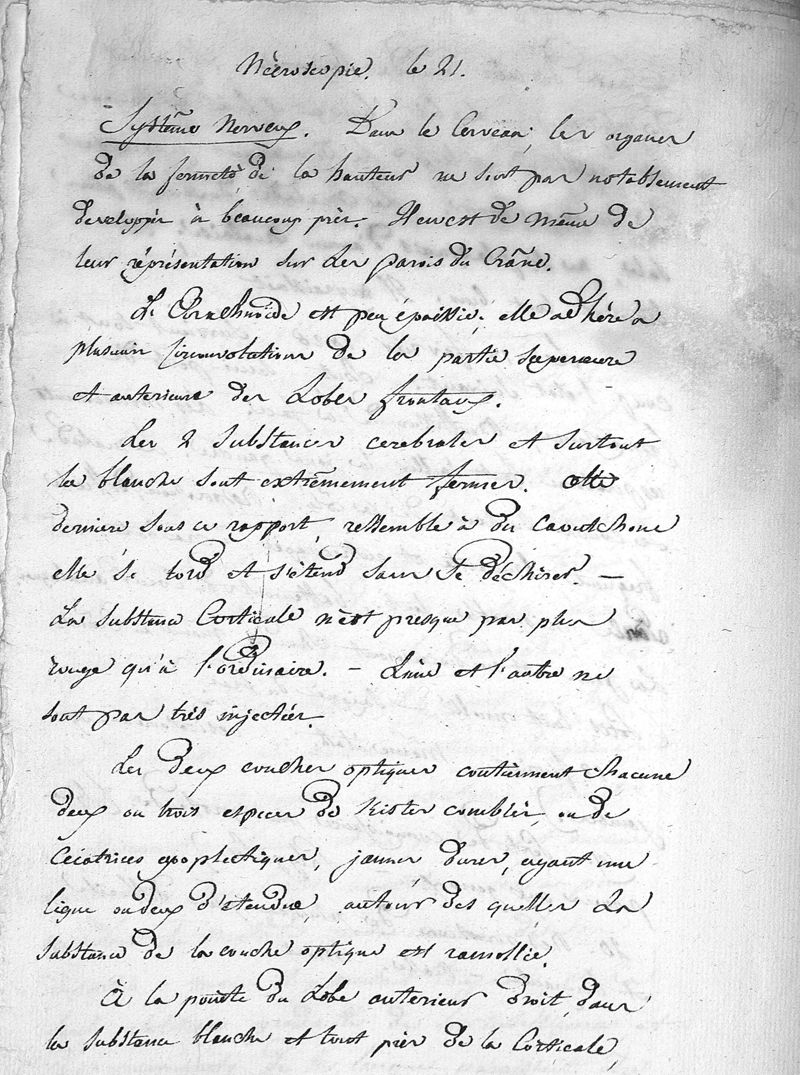 Nécroscopie. le 21.
Système Nerveux. Dans le Cerveau, les organes
de la fermeté, de la hauteur ne sont pas notablement
developpés à beaucoup près. Il en est de même de
leur réprésentation sur les parois du Crâne.
L'Arachnoïde est peu épaissie. elle adhère a
plusieurs circonvolutions de la partie superieure
et anterieure des Lobes frontaux.
Les 2 substances cerebrales et surtout
la blanche sont extrêmement fermes. Cette
derniere sous ce rapport, ressemble à du caoutchouc
elle se tord et s'étend sans se déchirer. —
La substance Corticale n'est presque pas plus
rouge qu'à l'ordinaire. — L'une et l'autre ne
sont pas très injectées.
Les deux couches optiques contiennent chacune
deux ou trois especes de Kistes comblés, ou de
Cicatrices apoplectiques, jaunes dures, ayant une
ligne ou deux d'étendue autour des quelles La
substance de la couche optique est ramollie.
À la pointe du Lobe anterieur droit, dans
la substance blanche et tout près de la Corticale,